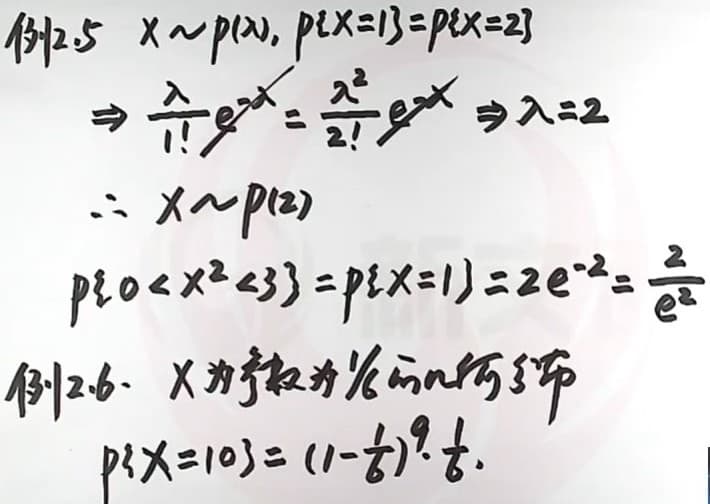 例2.5 X~P(λ), P{X=1}=P{X=2}
⇒ λ/1! e^-λ = λ²/2! e^-λ ⇒ λ=2
∴ X~P(2)
P{0<X²<3}=P{X=1}=2e^-2=2/e²
例2.6. X为参数为1/6的几何分布
P{X=10}=(1-1/6)^9·1/6.